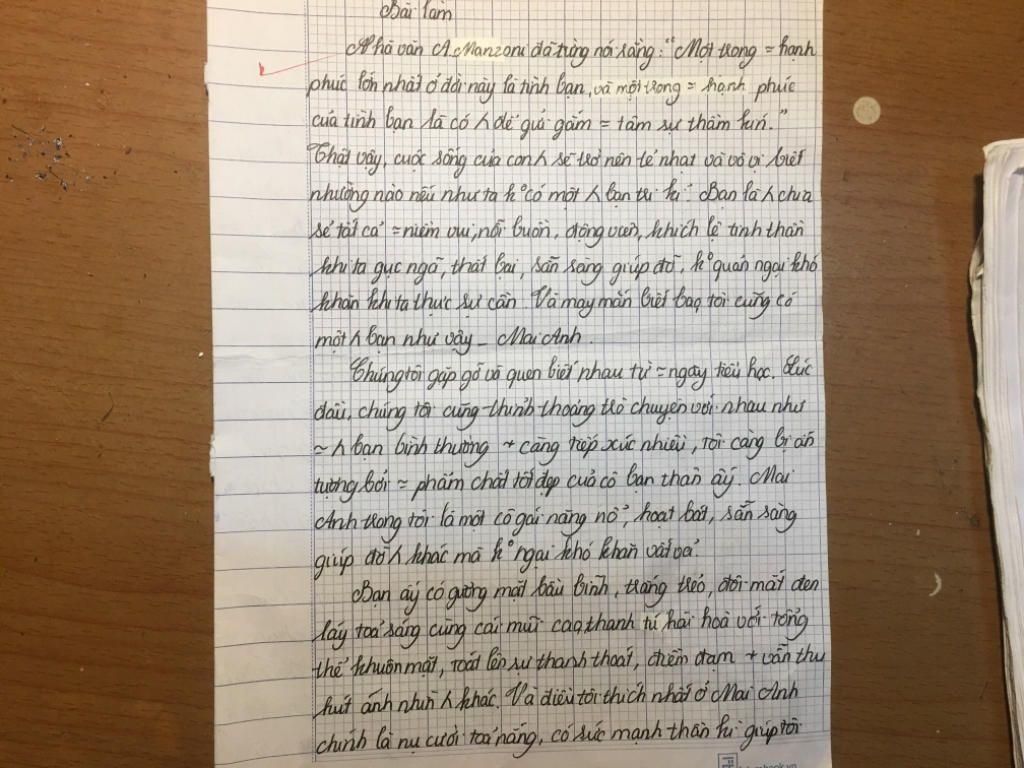 Bài làm
Nhà văn A.Manzoni đã từng nói rằng: "Một trong = hạnh
phúc lớn nhất ở đời này là tình bạn, và một trong = hạnh phúc
của tình bạn là có λ để gửi gắm = tâm sự thầm kín."
Thật vậy, cuộc sống của con λ sẽ trở nên tẻ nhạt và vô vị biết
nhường nào nếu như ta k° có một λ bạn tri kỉ. Bạn là λ chia
sẻ tất cả = niềm vui, nỗi buồn, động viên, khích lệ tinh thần
khi ta gục ngã, thất bại, sẵn sàng giúp đỡ, k° quản ngại khó
khăn khi ta thực sự cần. Và may mắn biết bao, tôi cũng có
một λ bạn như vậy - Mai Anh.
Chúng tôi gặp gỡ và quen biết nhau từ = ngày tiểu học. Lúc
đầu, chúng tôi cũng thỉnh thoảng trò chuyện với nhau như
~ λ bạn bình thường + càng tiếp xúc nhiều, tôi càng bị ấn
tượng bởi = phẩm chất tốt đẹp của cô bạn thân ấy. Mai
Anh trong tôi là một cô gái năng nổ, hoạt bát, sẵn sàng
giúp đỡ λ khác mà k° ngại khó khăn vất vả.
Bạn ấy có gương mặt bầu bĩnh, trắng trẻo, đôi mắt đen
láy toả sáng cùng cái mũi cao, thanh tú hài hoà với tổng
thể khuôn mặt, toát lên sự thanh thoát, điềm đạm + vẫn thu
hút ánh nhìn λ khác. Và điều tôi thích nhất ở Mai Anh
chính là nụ cười toả nắng, có sức mạnh thần kì giúp tôi